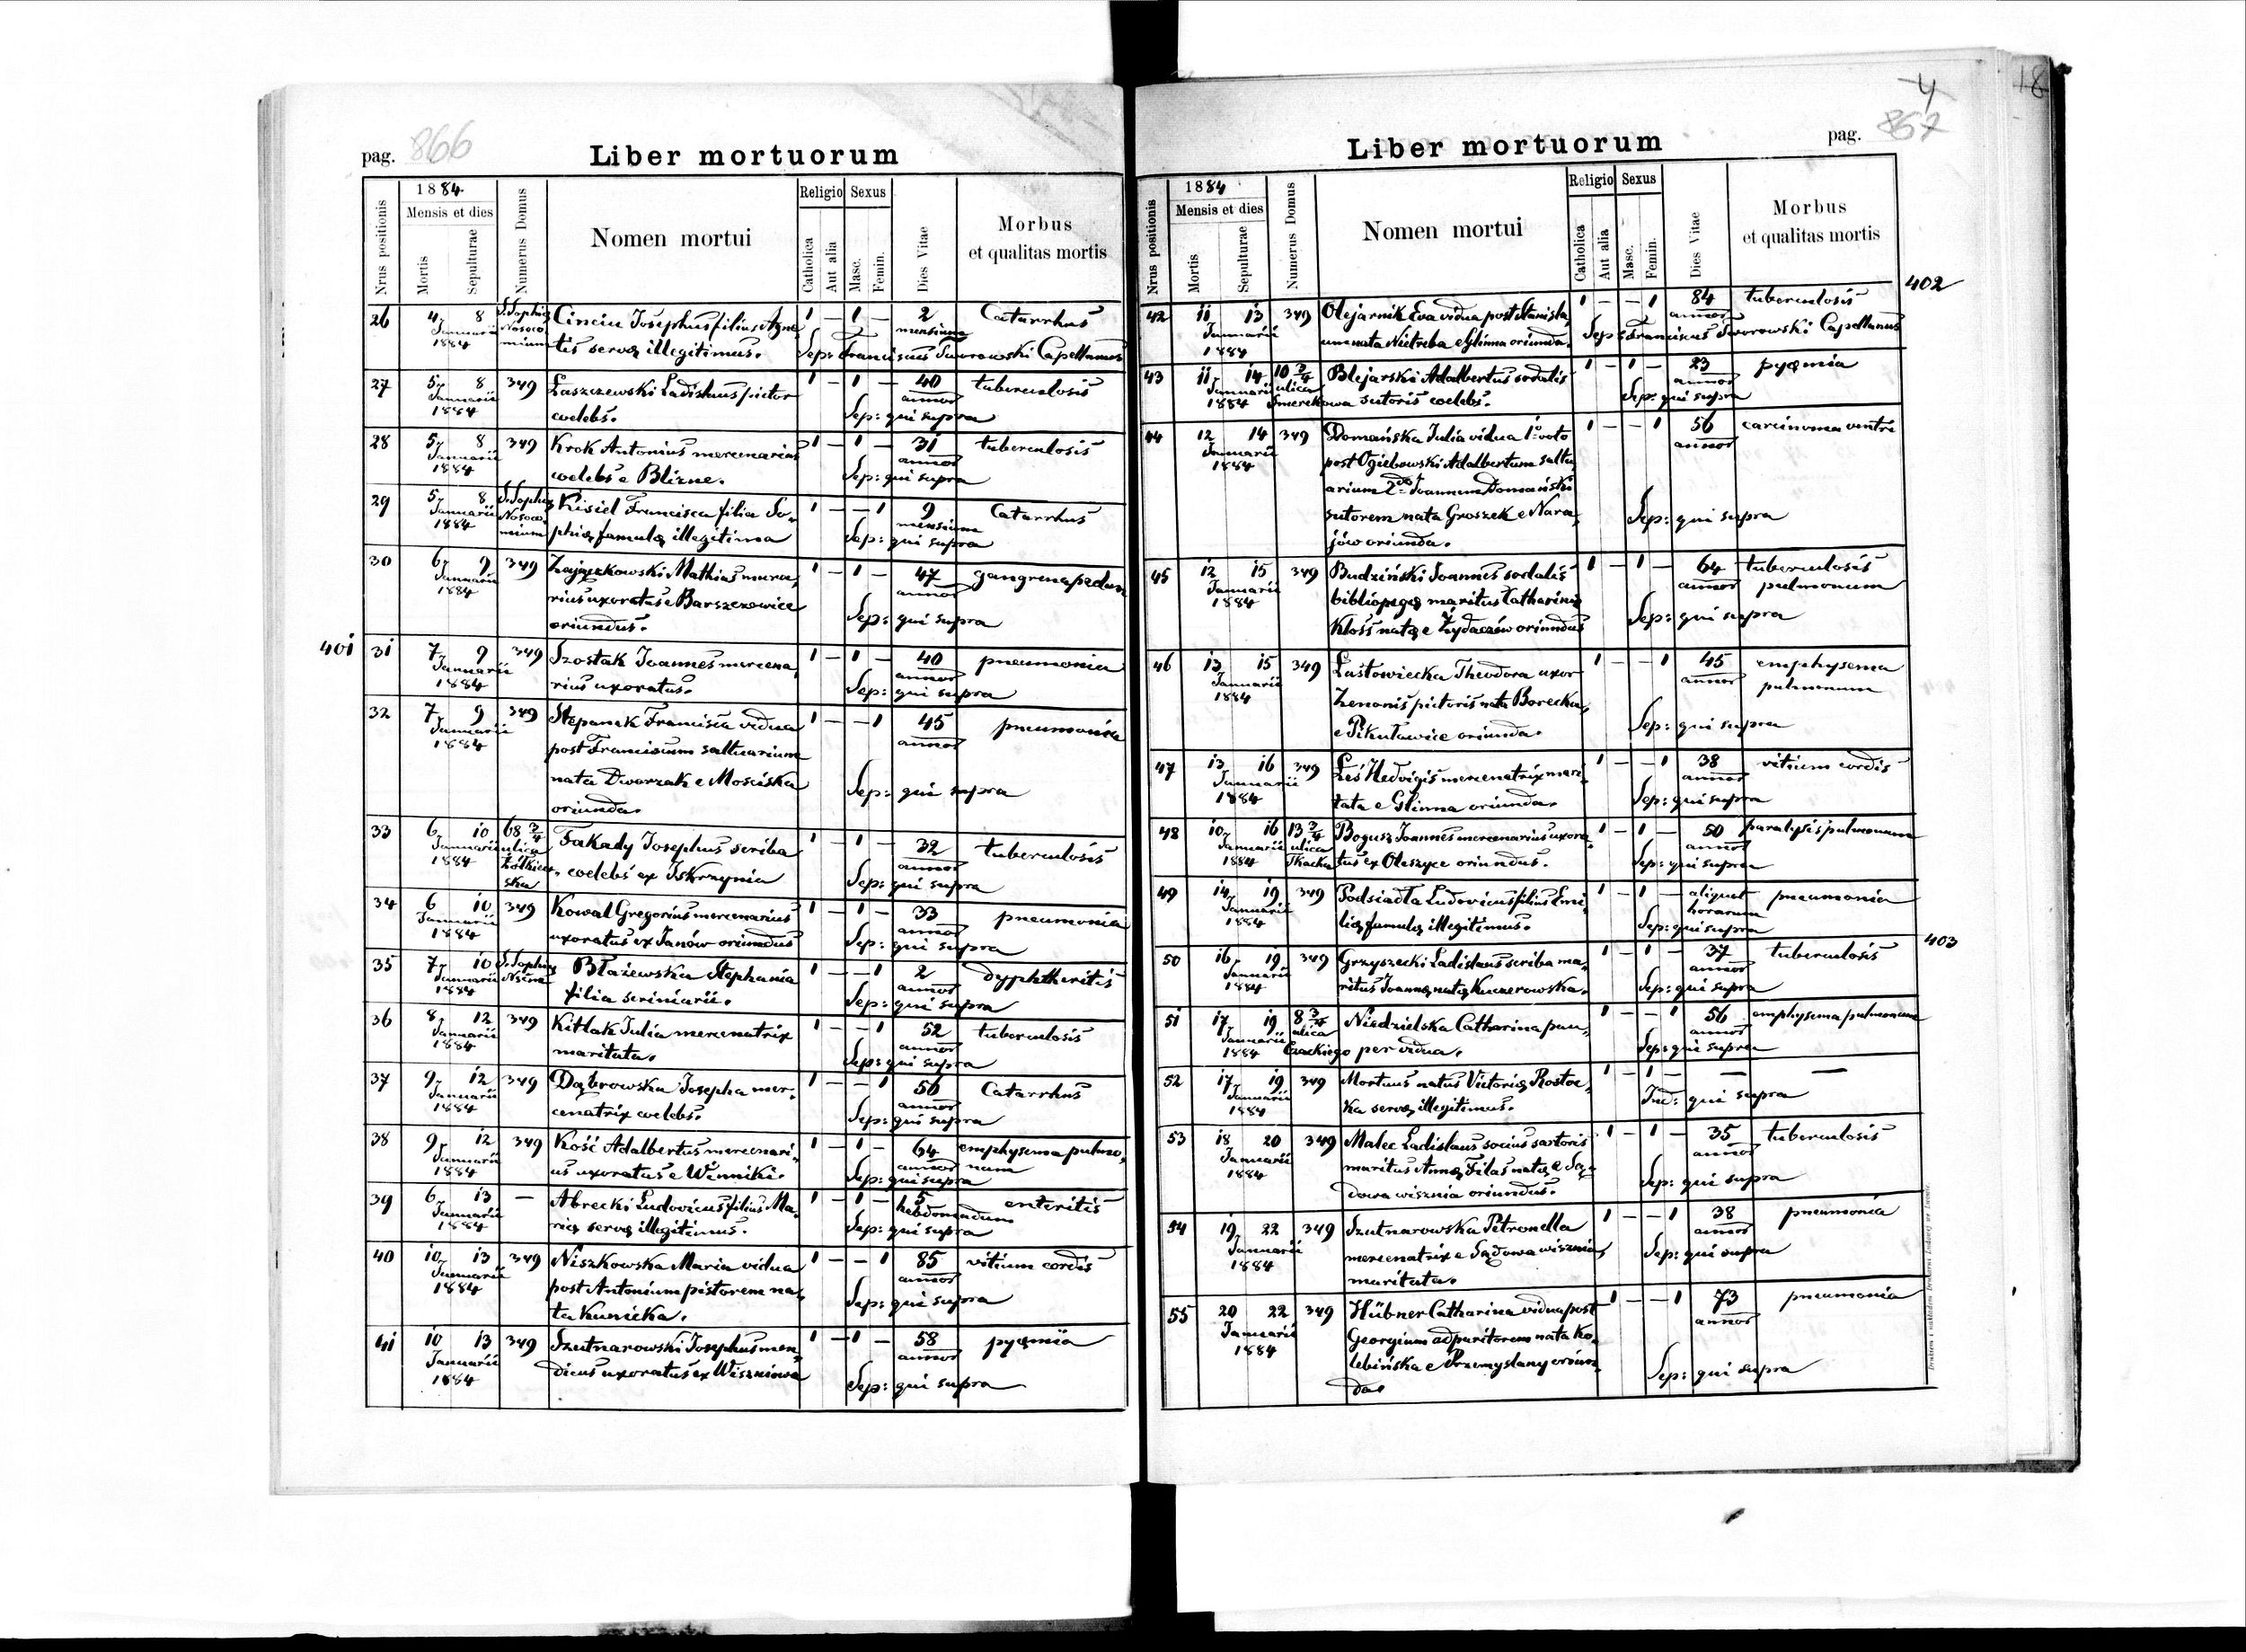 pag. 866
Liber mortuorum
Nrus positionis
1884.
Mensis et dies
Mortis
Sepulturae
Numerus Domus
Nomen mortui
Religio
Catholica
Aut alia
Sexus
Masc.
Femin.
Dies Vitae
Morbus
et qualitas mortis
26 4 8 S. Sophia Cinciu Josephus filius Agne 1 – 1 – 2 Catarrhus
Januarii Nosoco mensium
1884 mium tis servæ illegitimus. Sep: Franciscus Tworowski Capellanus
27 5 8 349 Łaszczewski Ladislaus pictor 1 – 1 – 40 tuberculosis
Januarii annor
1884 coelebs. Sep: qui supra
28 5 8 349 Krok Antonius mercenarius 1 – 1 – 31 tuberculosis
Januarii annor
1884 coelebs e Blizne. Sep: qui supra
29 5 8 S. Sophia Kisiel Francisca filia So- 1 – – 1 9 Catarrhus
Januarii Nosoco mensium
1884 mium phiæ famulæ illegitima Sep: qui supra
30 6 9 349 Zajączkowski Mathias mura 1 – 1 – 47 gangrena pedum
Januarii annor
1884 rius uxoratus e Barszczowice Sep: qui supra
oriundus.
401 31 7 9 349 Szostak Joannes mercena 1 – 1 – 40 pneumonia
Januarii annor
1884 rius uxoratus. Sep: qui supra
32 7 9 349 Stepanek Francisca vidua 1 – – 1 45 pneumonia
Januarii annor
1884 post Franciscum saltuarium
nata Dworzak e Mosciska Sep: qui supra
oriunda.
33 6 10 68 3/4 Fakady Josephus scriba 1 – 1 – 32 tuberculosis
Januarii ulica annor
1884 Żółkiew- coelebs ex Iskrzynia Sep: qui supra
ska
34 6 10 349 Kowal Gregorius mercenarius 1 – 1 – 33 pneumonia
Januarii annor
1884 uxoratus ex Janów oriundus Sep: qui supra
35 7 10 S. Sophia Błażewska Stephania 1 – – 1 2 dyphtheritis
Januarii annor
1884 filia seriniarii. Sep: qui supra
36 8 12 349 Kitlak Julia mercenatrix 1 – – 1 52 tuberculosis
Januarii annor
1884 maritata. Sep: qui supra
37 9 12 349 Dąbrowska Josepha mer- 1 – – 1 56 Catarrhus
Januarii annor
1884 cenatrix coelebs. Sep: qui supra
38 9 12 349 Kość Adalbertus mercenari- 1 – 1 – 64 emphysema pulmo
Januarii annor num
1884 us uxoratus e Winniki. Sep: qui supra
39 6 13 – Abrecki Ludovicus filius Ma 1 – 1 – 5 enteritis
Januarii hebdomadum
1884 riæ servæ illegitimus. Sep: qui supra
40 10 13 349 Niszkowska Maria vidua 1 – – 1 85 vitium cordis
Januarii annor
1884 post Antonium pistorem na- Sep: qui supra
ta Kunicka.
41 10 13 349 Szutnarowski Josephus men 1 – 1 – 58 pyæmia
Januarii annor
1884 dicus uxoratus ex Wiszniowa Sep: qui supra
4
18
Liber mortuorum
pag. 867
Nrus positionis
1884
Mensis et dies
Mortis
Sepulturae
Numerus Domus
Nomen mortui
Religio
Catholica
Aut alia
Sexus
Masc.
Femin.
Dies Vitae
Morbus
et qualitas mortis
402
42 11 13 349 Olejarnik Eva vidua post Stanisla 1 – – 1 84 tuberculosis
Januarii annor
1884 um nata Nietreba e Glinna oriunda. Sep: Franciscus Tworowski Capellanus
43 11 14 10 3/4 Blejarski Adalbertus sodalis 1 – 1 – 23 pyæmia
Januarii ulica annor
1884 Smerekowa sutoris coelebs. Sep: qui supra
44 12 14 349 Domańska Julia vidua 1o voto 1 – – 1 56 carcinoma ventri
Januarii annor
1884 post Ogiebowski Adalbertum saltu
arium 2do Joannem Domański
sutorem nata Groszek e Nara Sep: qui supra
jów oriunda.
45 12 15 349 Budziński Joannes sodalis 1 – 1 – 64 tuberculosis
Januarii annor pulmonum
1884 bibliopegæ maritus Catharinæ Sep: qui supra
Kloss natæ e Żydaczów oriundus
46 13 15 349 Lastowiecka Theodora uxor 1 – – 1 45 emphysema
Januarii annor pulmonum
1884 Zenonis pictoris nata Borecka Sep: qui supra
e Pikułowice oriunda.
47 13 16 349 Łeś Hedvigis mercenatrix mari 1 – – 1 38 vitium cordis
Januarii annor
1884 tata e Glinna oriunda. Sep: qui supra
48 10 16 13 3/4 Bogusz Joannes mercenarius uxora 1 – 1 – 50 paralysis pulmonum
Januarii ulica annor
1884 Tkacka tus ex Oleszyce oriundus. Sep: qui supra
49 14 19 349 Podsiadła Ludovicus filius Emi 1 – 1 – aliquot pneumonia
Januarii horarum
1884 liæ famulæ illegitimus. Sep: qui supra
403
50 16 19 349 Grzyszecki Ladislaus scriba ma 1 – 1 – 37 tuberculosis
Januarii annor
1884 ritus Joannæ natæ Kuczerowska. Sep: qui supra
51 17 19 8 3/4 Niedzielska Catharina pau- 1 – – 1 56 emphysema pulmonum
Januarii ulica annor
1884 Czackiego per vidua. Sep: qui supra
52 17 19 349 Mortuus natus Victoriæ Rostoc 1 – 1 – — —
Januarii
1884 ka servæ illegitimus. Ind: qui supra
53 18 20 349 Malec Ladislaus socius sartoris 1 – 1 – 35 tuberculosis
Januarii annor
1884 maritus Annæ Filas natæ e Są- Sep: qui supra
dowa wisznia oriundus.
54 19 22 349 Szutnarowska Petronella 1 – – 1 38 pneumonia
Januarii annor
1884 mercenatrix e Sądowa wisznia Sep: qui supra
maritata.
55 20 22 349 Hübner Catharina vidua post 1 – – 1 73 pneumonia
Januarii annor
1884 Georgium adparitorem nata Ko
lebińska e Przemyslany oriun Sep: qui supra
da.